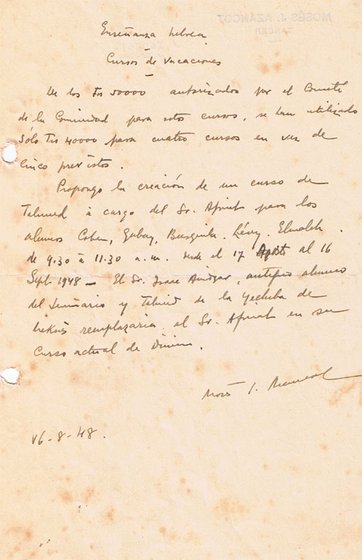 MOSÉS J. AZANCOT
TANGER
Enseñanza hebrea
Cursos de vacaciones
De los Frs 50000 autorizados por el Comité
de la Comunidad para estos cursos, se han utilizado
Sólo Frs 40000 para cuatro cursos en vez de
Cinco previstos.
Propongo la creación de un curso de
Talmud a cargo del Sr. para los
alumnos Cohen, Gabay, Lévy, Elmaleh
de 9.30 à 11.30 a.m. desde el 17 Agost al 16
Sept 1948 - El Sr. Isaac antiguo alumno
del Seminario y de la Yechuba de
remplazaria el Sr. en su
Curso actual de Dinim.
16-8-48.